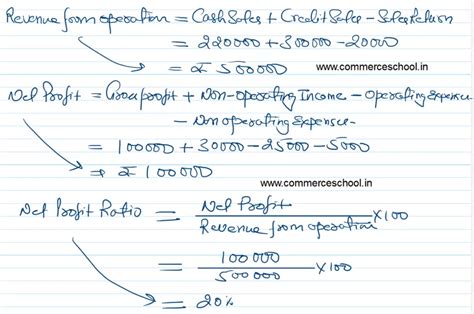 Revenue from operation = Cash Sales + Credit Sales - Sales Return
= 220000 + 300000 - 20000
= ₹ 500000 www.commerceschool.in
Net Profit = Gross profit + Non-operating Income - Operating Expenses
- Non operating Expenses
= 100000 + 30000 - 25000 - 5000
= ₹ 100000
www.commerceschool.in
Net Profit Ratio = Net Profit / Revenue from operation × 100
= 100000 / 500000 × 100
= 20%